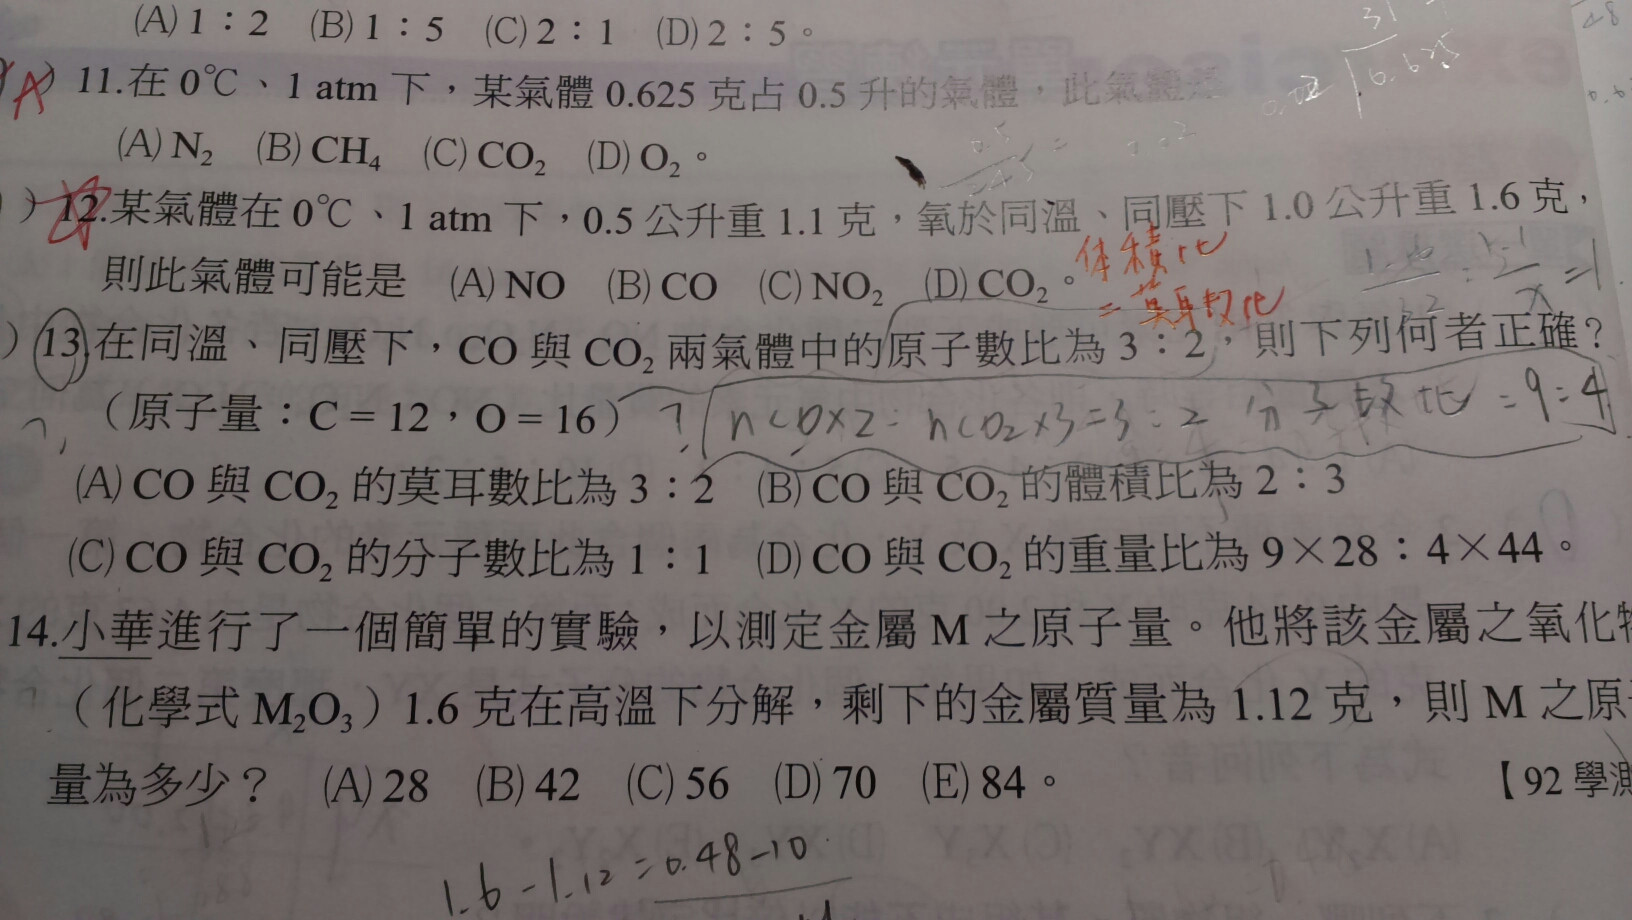 (A) 1：2 (B) 1：5 (C) 2：1 (D) 2：5。
11.在 0℃、1 atm 下，某氣體 0.625 克占 0.5 升的氣體，此氣體是
(A) N₂ (B) CH₄ (C) CO₂ (D) O₂。
12.某氣體在 0℃、1 atm 下，0.5 公升重 1.1 克，氧於同溫、同壓下 1.0 公升重 1.6 克，
体積比
則此氣體可能是 (A) NO (B) CO (C) NO₂ (D) CO₂。
= 莫耳數比
13.在同溫、同壓下，CO 與 CO₂ 兩氣體中的原子數比為 3：2，則下列何者正確？
（原子量：C = 12，O = 16） ? nCO×2 : nCO₂×3 = 3 : 2 分子數比 = 9 : 4
(A) CO 與 CO₂ 的莫耳數比為 3：2 (B) CO 與 CO₂ 的體積比為 2：3
(C) CO 與 CO₂ 的分子數比為 1：1 (D) CO 與 CO₂ 的重量比為 9×28：4×44。
14.小華進行了一個簡單的實驗，以測定金屬 M 之原子量。他將該金屬之氧化
（化學式 M₂O₃）1.6 克在高溫下分解，剩下的金屬質量為 1.12 克，則 M 之原
量為多少？ (A) 28 (B) 42 (C) 56 (D) 70 (E) 84。 【92 學測
1.6 - 1.12 = 0.48